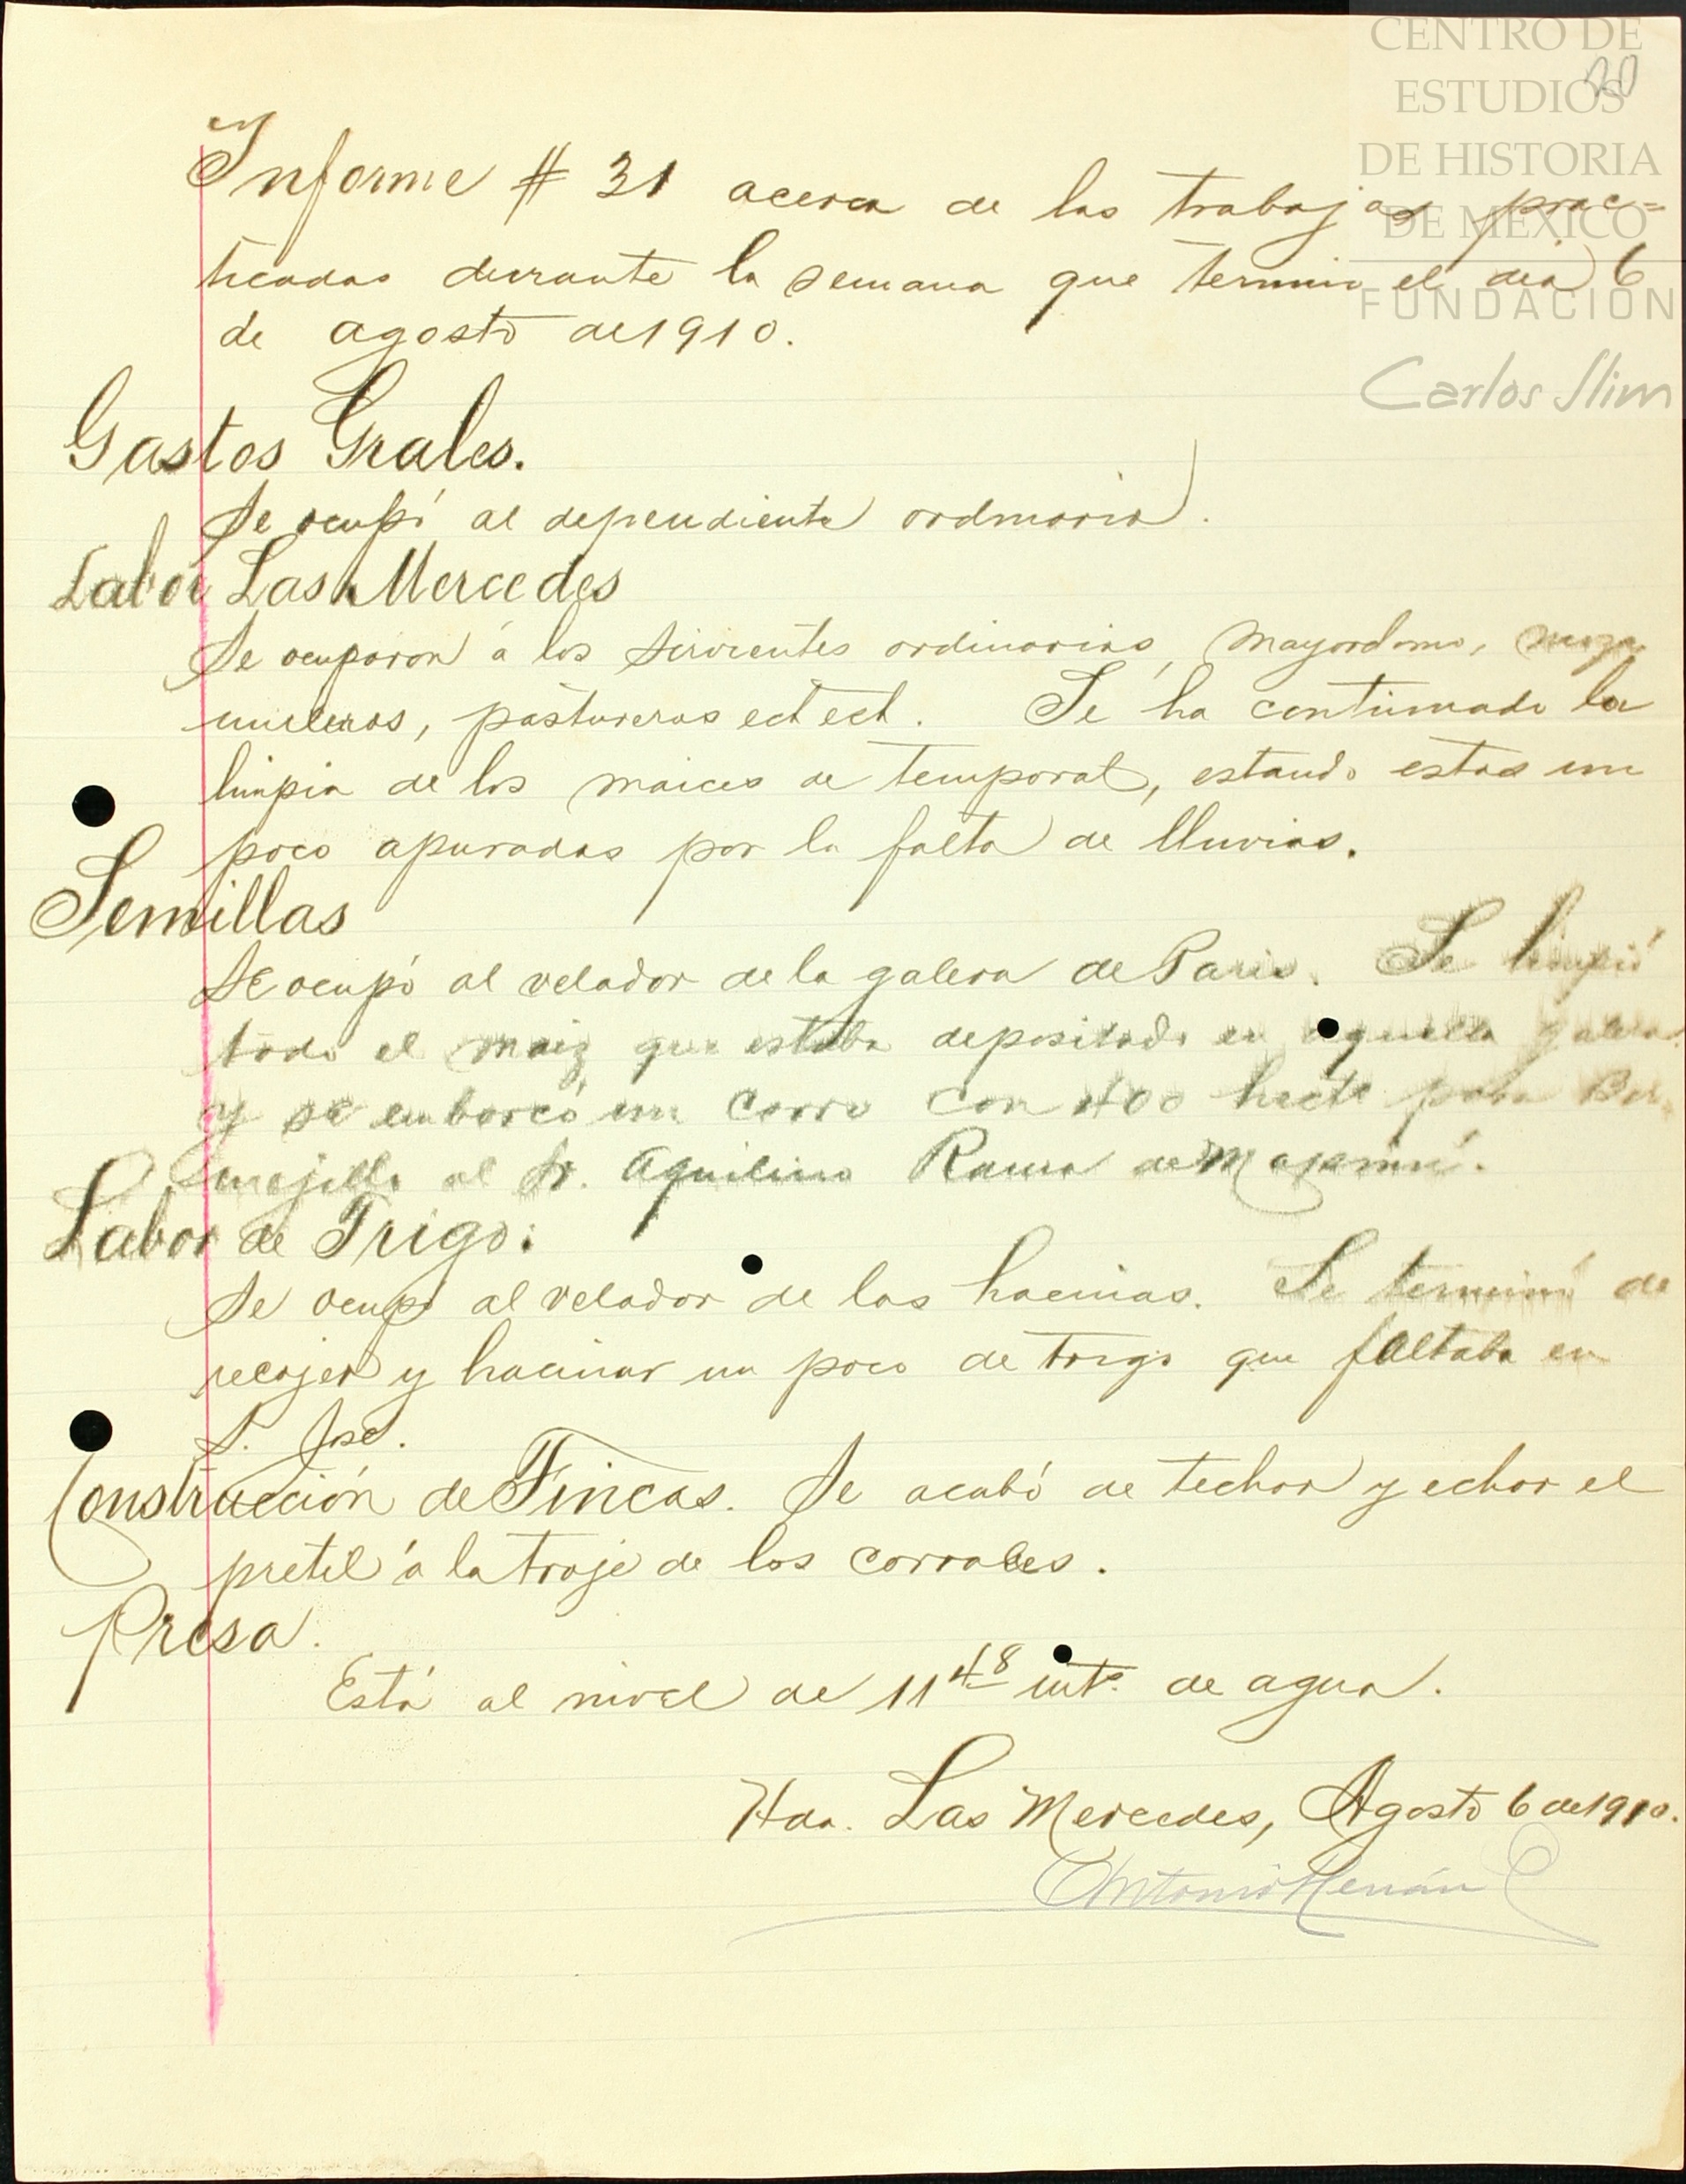 CENTRO DE
ESTUDIOS
DE HISTORIA
DE MEXICO
FUNDACIÓN
Carlos Slim
20
Informe # 31 acerca de los trabajos prac=
ticados durante la semana que terminó el día 6
de agosto de 1910.
Gastos Grales.
Se ocupó al dependiente ordinario.
Labor Las Mercedes
Se ocuparon á los sirvientes ordinarios, mayordomo,
muleros, pastureros ect ect. Se ha continuado la
limpia de los maices de temporal, estando estos un
poco apurados por la falta de lluvias.
Semillas
Se ocupó al velador de la galera de Paris. Se limpió
todo el maiz que estaba depositado en aquella galera
y se embarcó un carro con 400 hects para Ber-
mejillo al Sr. Aquilino Rama de Mapimí.
Labor de Trigo:
Se ocupó al velador de las hacinas. Se terminó de
recojer y hacinar un poco de trigo que faltaba en
S. José.
Construcción de Fincas. Se acabó de techar y echar el
pretil á la troje de los corrales.
Presa.
Está al nivel de 11 48 mts. de agua.
Hda. Las Mercedes, Agosto 6 de 1910.
Antonio Hernán